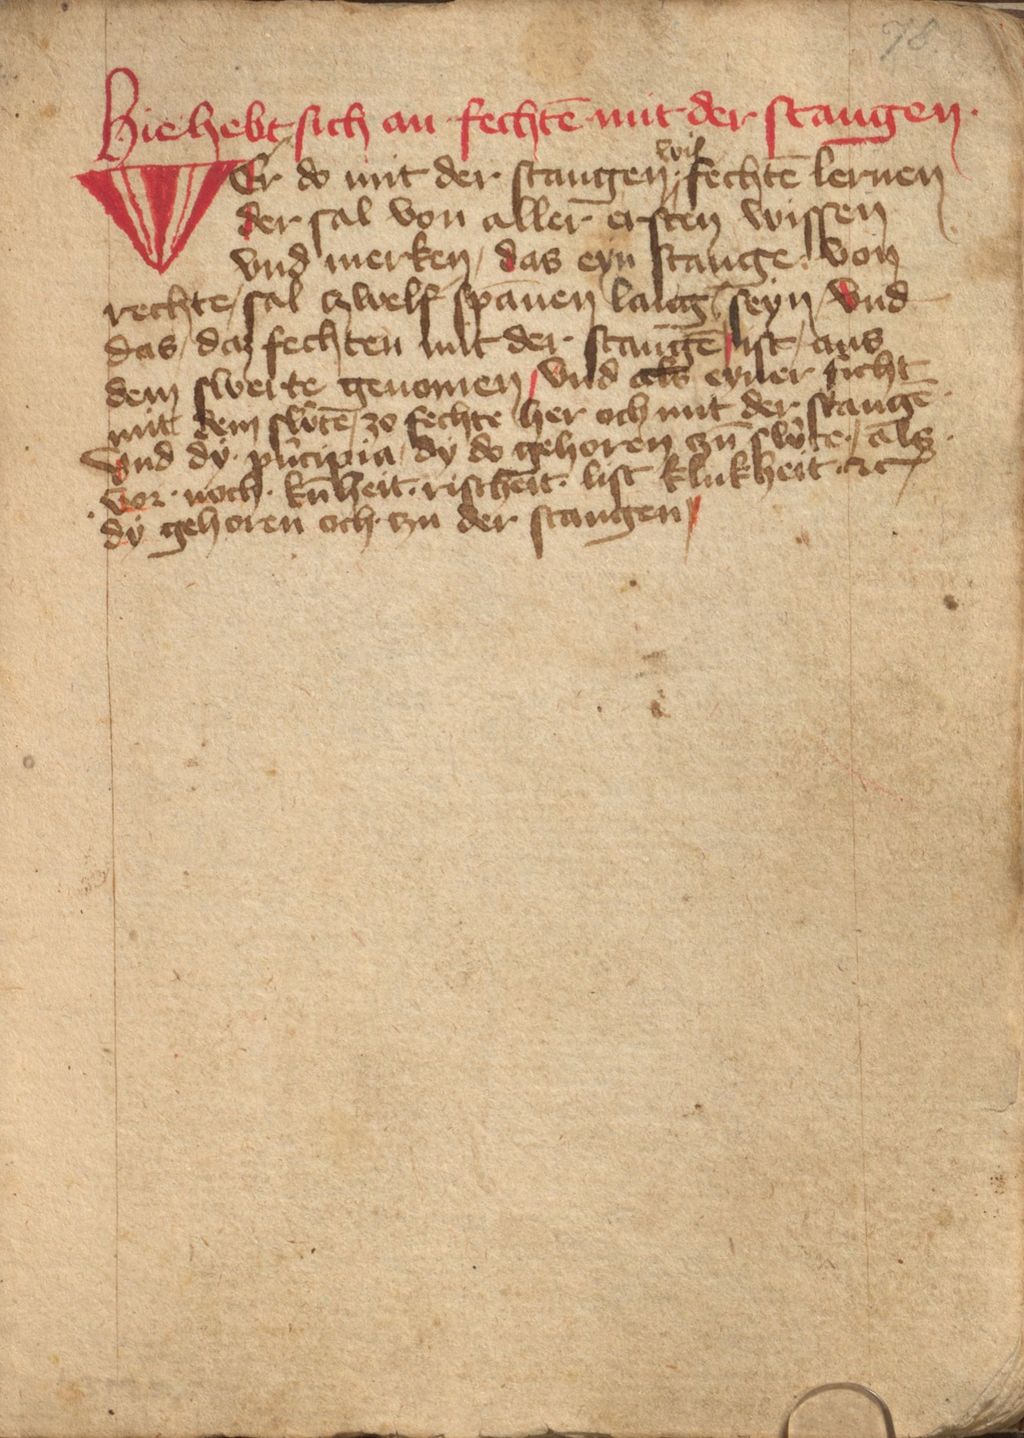 78
Hie hebt sich an fechtē mit der stangen ·
wil
WEr do mit der stangen fechtē lernen
der sal von aller ersten wissen
vnd merken / das eyn stange von
rechte / sal czwelf spānen lang seyn / vnd
das / daz fechten mit der stangē / ist / aus
dem swerte genomen / vnd als eyner ficht
mit dem sw̄tē / zo fechte her och mit der stangē ·
vnd dy · pn̄cipia / dy do gehoren czū sw̄te / als ·
· vor · noch · kūheit · rischeit · list klukheit · &c
dy gehoren och czu der stangen /